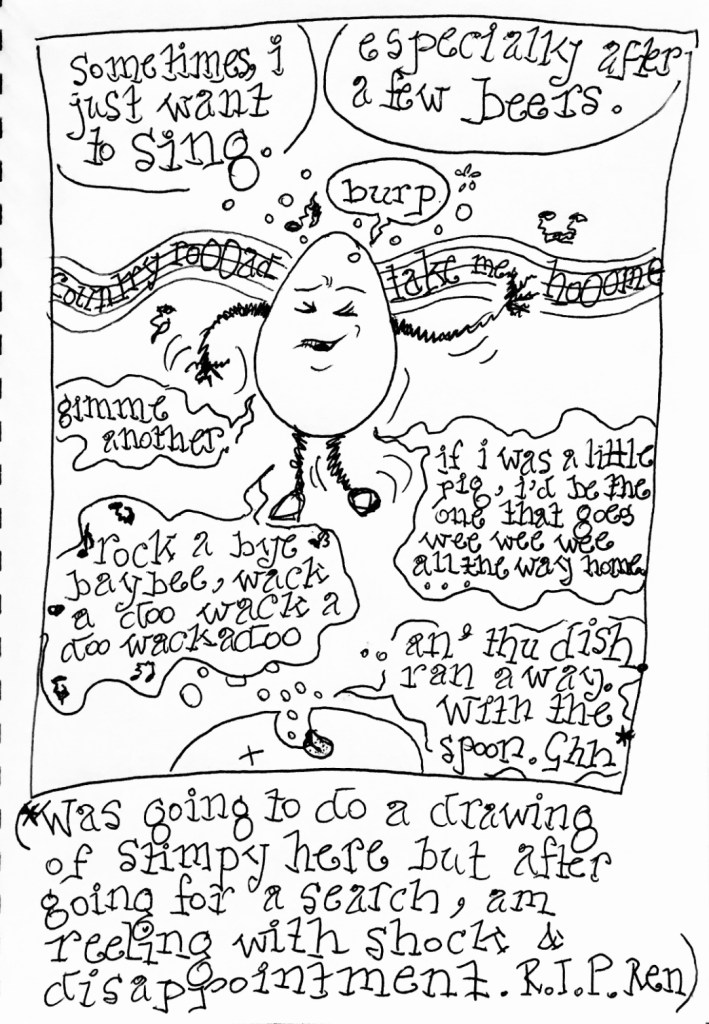 sometimes, i
just want
to sing.
especially after
a few beers.
burp
Country roOOad
take me
hoOOome
gimme
another.
if i was a little
pig, i'd be the
one that goes
wee wee wee
all the way home.
rock a bye
baybee, wack
a doo wack a
doo wackadoo
an' thu dish
ran away.
with the
spoon. Ghh
*
(*Was going to do a drawing
of stimpy here but after
going for a search, am
reeling with shock &
disappointment. R.I.P. Ren)